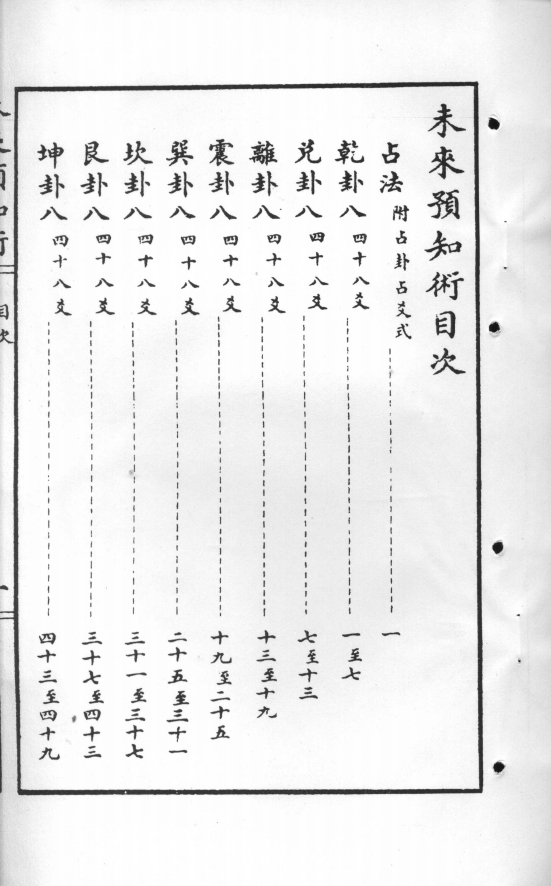 未來預知術目次
占法 附占卦占爻式 一
乾卦八 四十八爻 一至七
兌卦八 四十八爻 七至十三
離卦八 四十八爻 十三至十九
震卦八 四十八爻 十九至二十五
巽卦八 四十八爻 二十五至三十一
坎卦八 四十八爻 三十一至三十七
艮卦八 四十八爻 三十七至四十三
坤卦八 四十八爻 四十三至四十九
目次
一